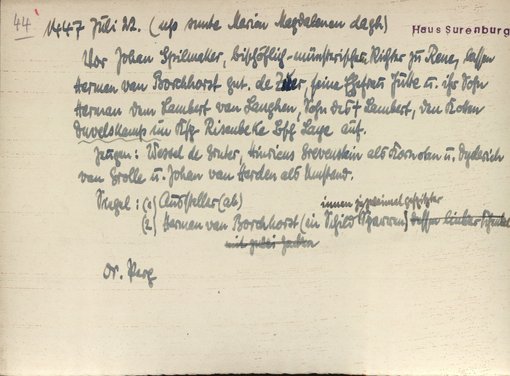 44
1447 Juli 22. (up sunte Marien Magdalenen dagh)
Haus Surenburg
Vor Johan Spilmaker, bischöflich-münsterischer Richter zu Rene, lassen
Herman van Borchhorst gnt. de , seine Ehefrau Jutte u. ihr Sohn
Herman dem Lambert van Langhen, Sohn des † Lambert, den Kothen
Duvelskamp im Ksp Risenbeke Bsch Lage auf.
Zeugen: Wessel de Gruter, Hinricus Grevenstein als Kornoten u. Dyderich
van Grolle u. Johan van Herden als Umstand.
Siegel: (1) Aussteller (ab)
innen
(2) Herman van Borchhorst (ein Schild Sparren) dessen linker
mit Zacken
Or. Perg